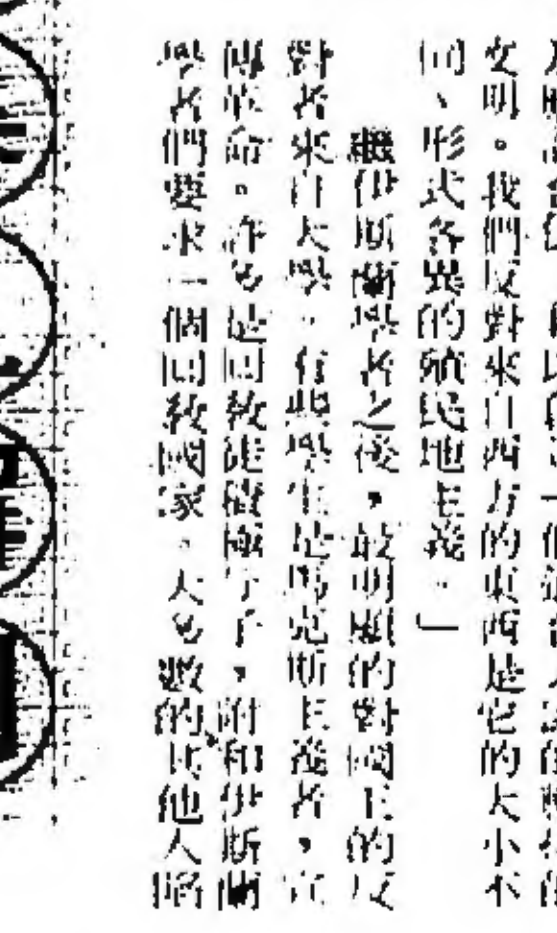 文明。我們反對來自西方的東西是它的大小不
同、形式各異的殖民地主義。」
繼伊斯蘭學者之後，最明顯的對國王的反
對者來自大學。有些學生是馬克斯主義者，宣
傳革命。許多是回教徒積極分子，附和伊斯蘭
學者們要求一個回教國家。大多數的其他人暗